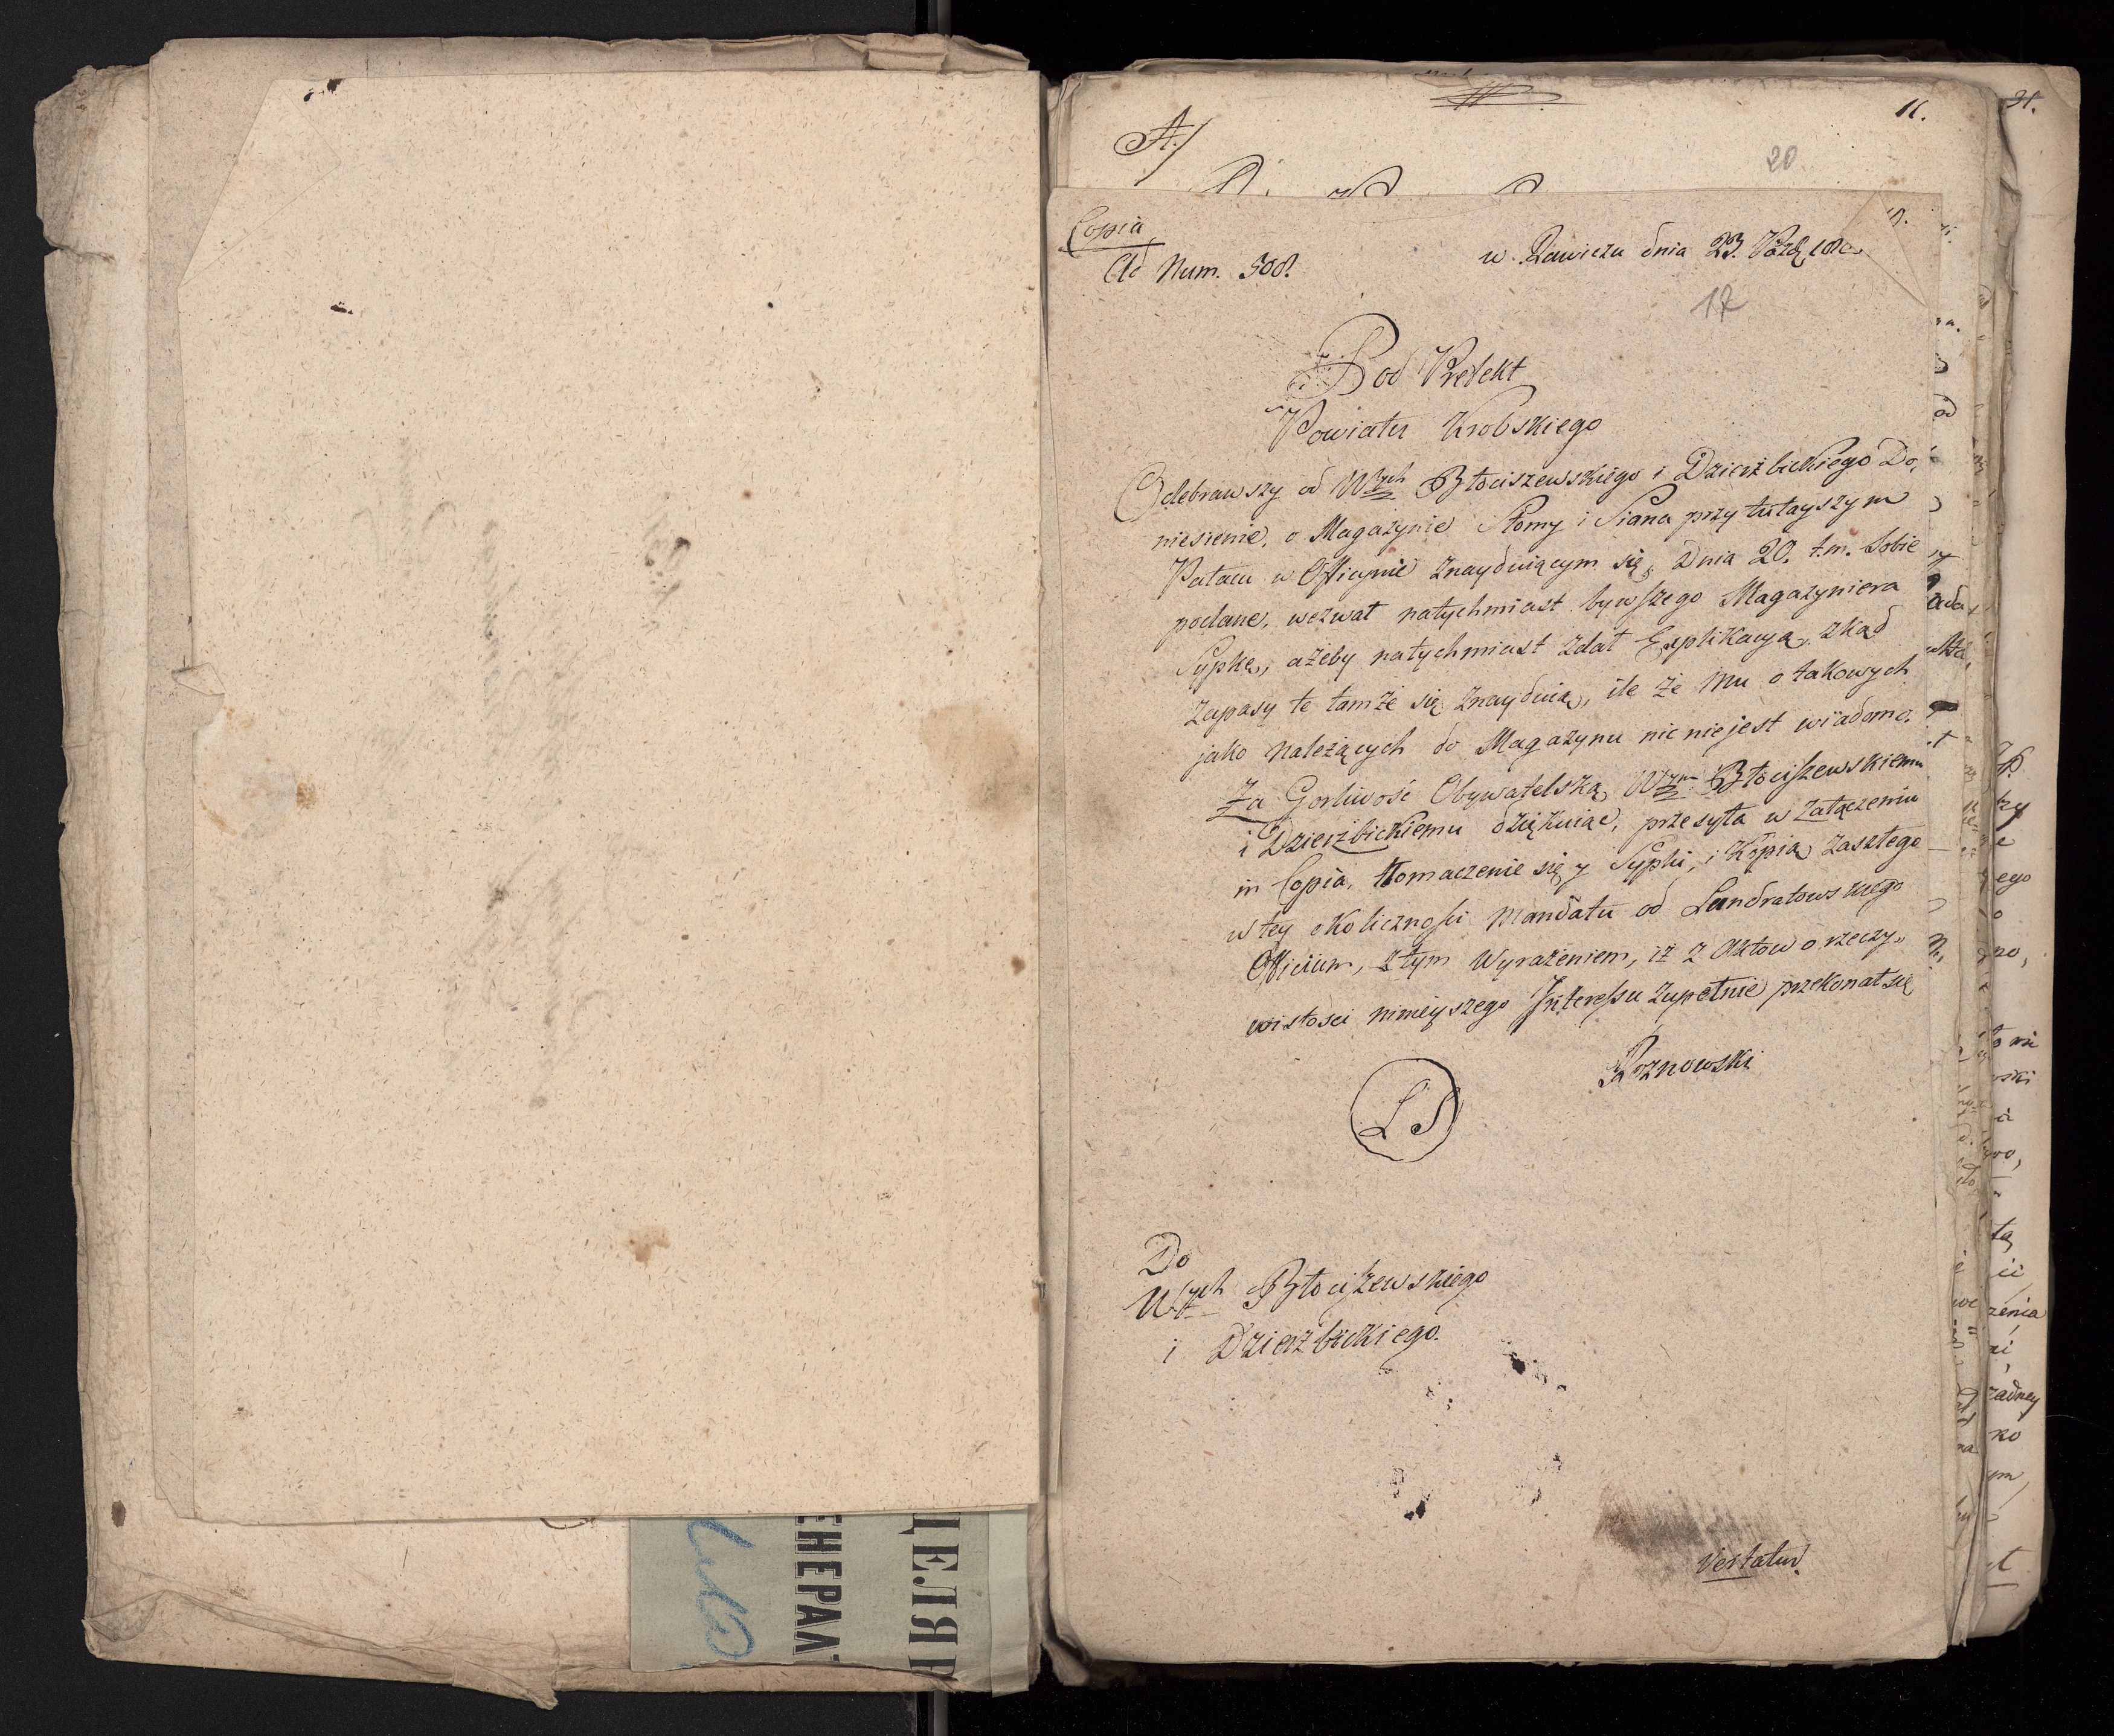 A./
11.
31.
20
Copia
Ad Num. 308.
w Rawiczu dnia 23. Paźdź
17
Pod Prefekt
Powiatu Krobskiego
Odebrawszy od WPych Błociszewskiego i Dzierżbickiego Do,
niesienie, o Magazynie Słomy i Siana przy tutayszym
Pałacu w Officynie znayduiącym się, Dnia 20. t.m. Sobie
podane, wezwał natychmiast bywszego Magazyniera
Sypkę, ażeby natychmiast zdał Explikacyą, zkąd
zapasy te tamże się znayduią, ile że mu o takowych
jako należących do Magazynu nic nie jest wiadomo.
Za Gorliwość Obywatelską WPym Błociszewskiemu
i Dzierżbickiemu dziękuiąc, przesyła w załączeniu
in Copia, tłomaczenie się Sypki, i Kopią zaszłego
w tey okoliczności Mandatu od Landratowskiego
Officium, z tym Wyrażeniem, iż z Aktow o rzeczy„
wistości ninieyszego Interessu zupełnie przekonał się
Rznowski
LS
Do
WPych Błociszewskiego
i Dzierżbickiego.
Vertatur.
ЦЕЛЯР
ЕНЕРАЛ